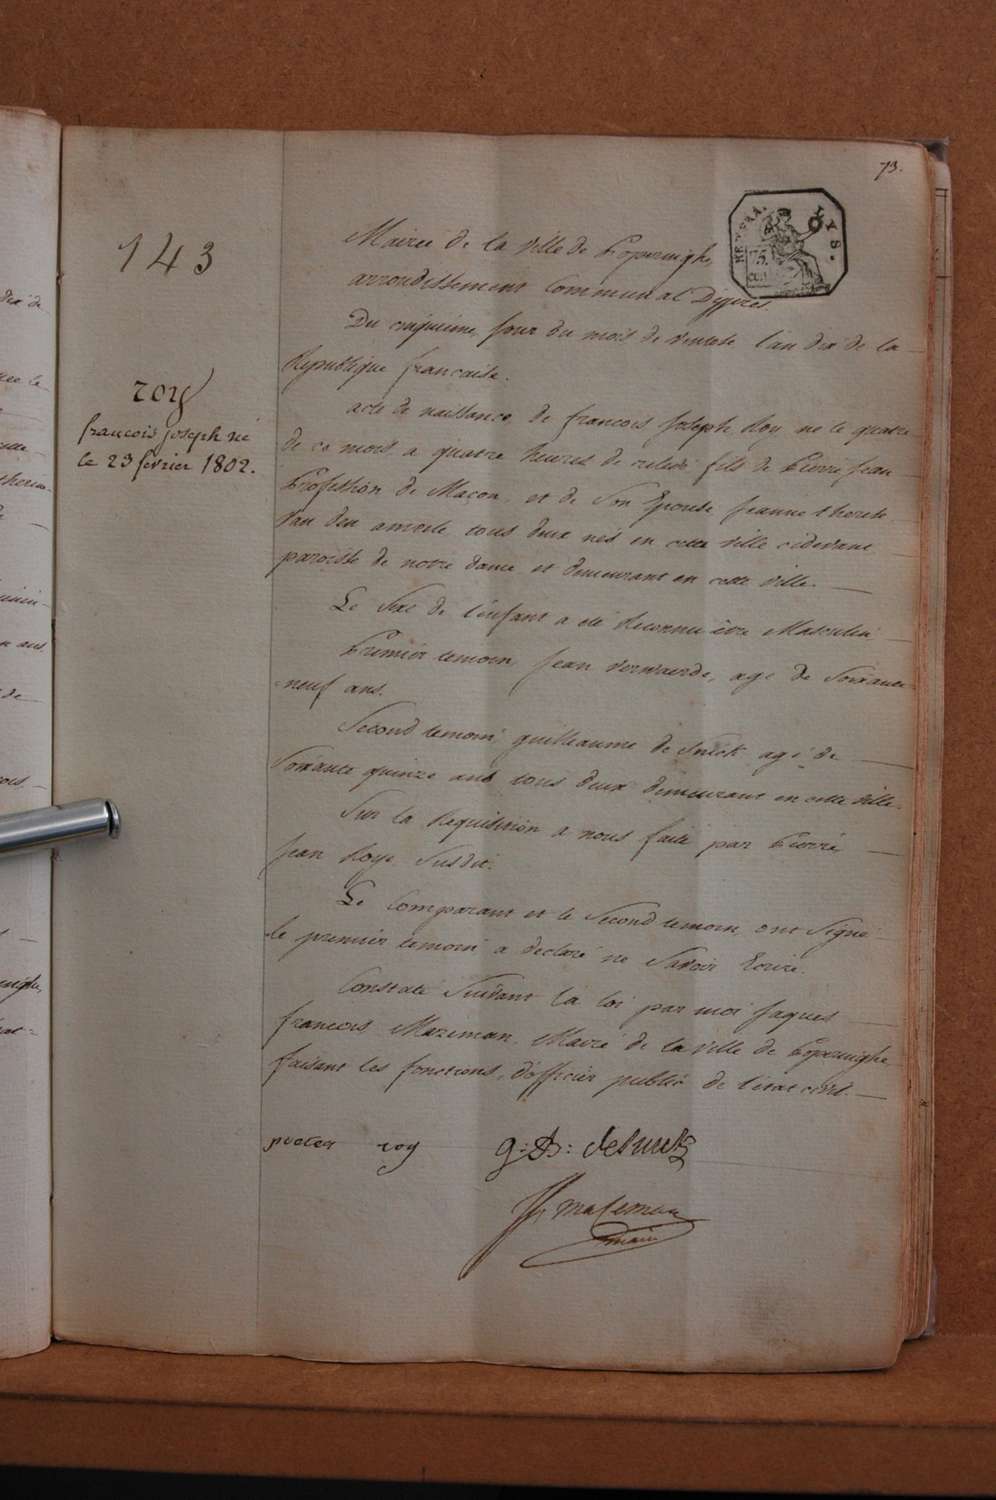 73.
REP. FRA.
LYS.
75.
143
Mairie de la ville de Poperinghe,
arrondissement Communal Dÿpres.
Du cinquième jour du mois de ventose l'an dix de la
Republique francaise.
roÿ
francois joseph né
le 23 fevrier 1802.
acte de naissance de francois Joseph Roy né le quatre
de ce mois a quatre heures de relevé fils de Pierre Jean
Profession de Maçon, et de Son Epouse Jeanne therese
Van den amoele tous deux nés en cette ville cidevant
paroisse de notre dame et demeurant en cette ville.
Le Sexe de l'enfant a été Reconnu être Masculin
Premier temoin Jean verwaerde, agé de Soixante
=neuf ans.
Second temoin guilleaume de Snick agé de
Soixante quinze ans tous deux demeurant en cette ville.
Sur la Requisition a nous faite par Pierre
Jean Roye Susdit.
Le Comparant et le Second temoin ont Signé
le premier temoin a declaré ne Savoir Ecrire.
Constaté Suivant la loi par moi Jaques
francois Mazeman, Maire de la ville de Poperinghe
faisant les fonctions, d'officier public de l'état civil.
roy
mazeman
maire